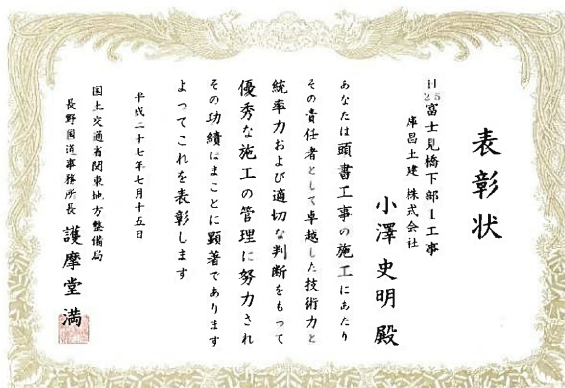 表彰状
H25富士見橋下部1工事
庫昌土建 株式会社
小澤史明 殿
あなたは頭書工事の施工にあたり
その責任者として卓越した技術力と
統率力および適切な判断をもって
優秀な施工の管理に努力され
その功績はまことに顕著であります
よってこれを表彰します
平成二十七年七月十五日
国土交通省関東地方整備局
長野国道事務所長 護摩堂 満